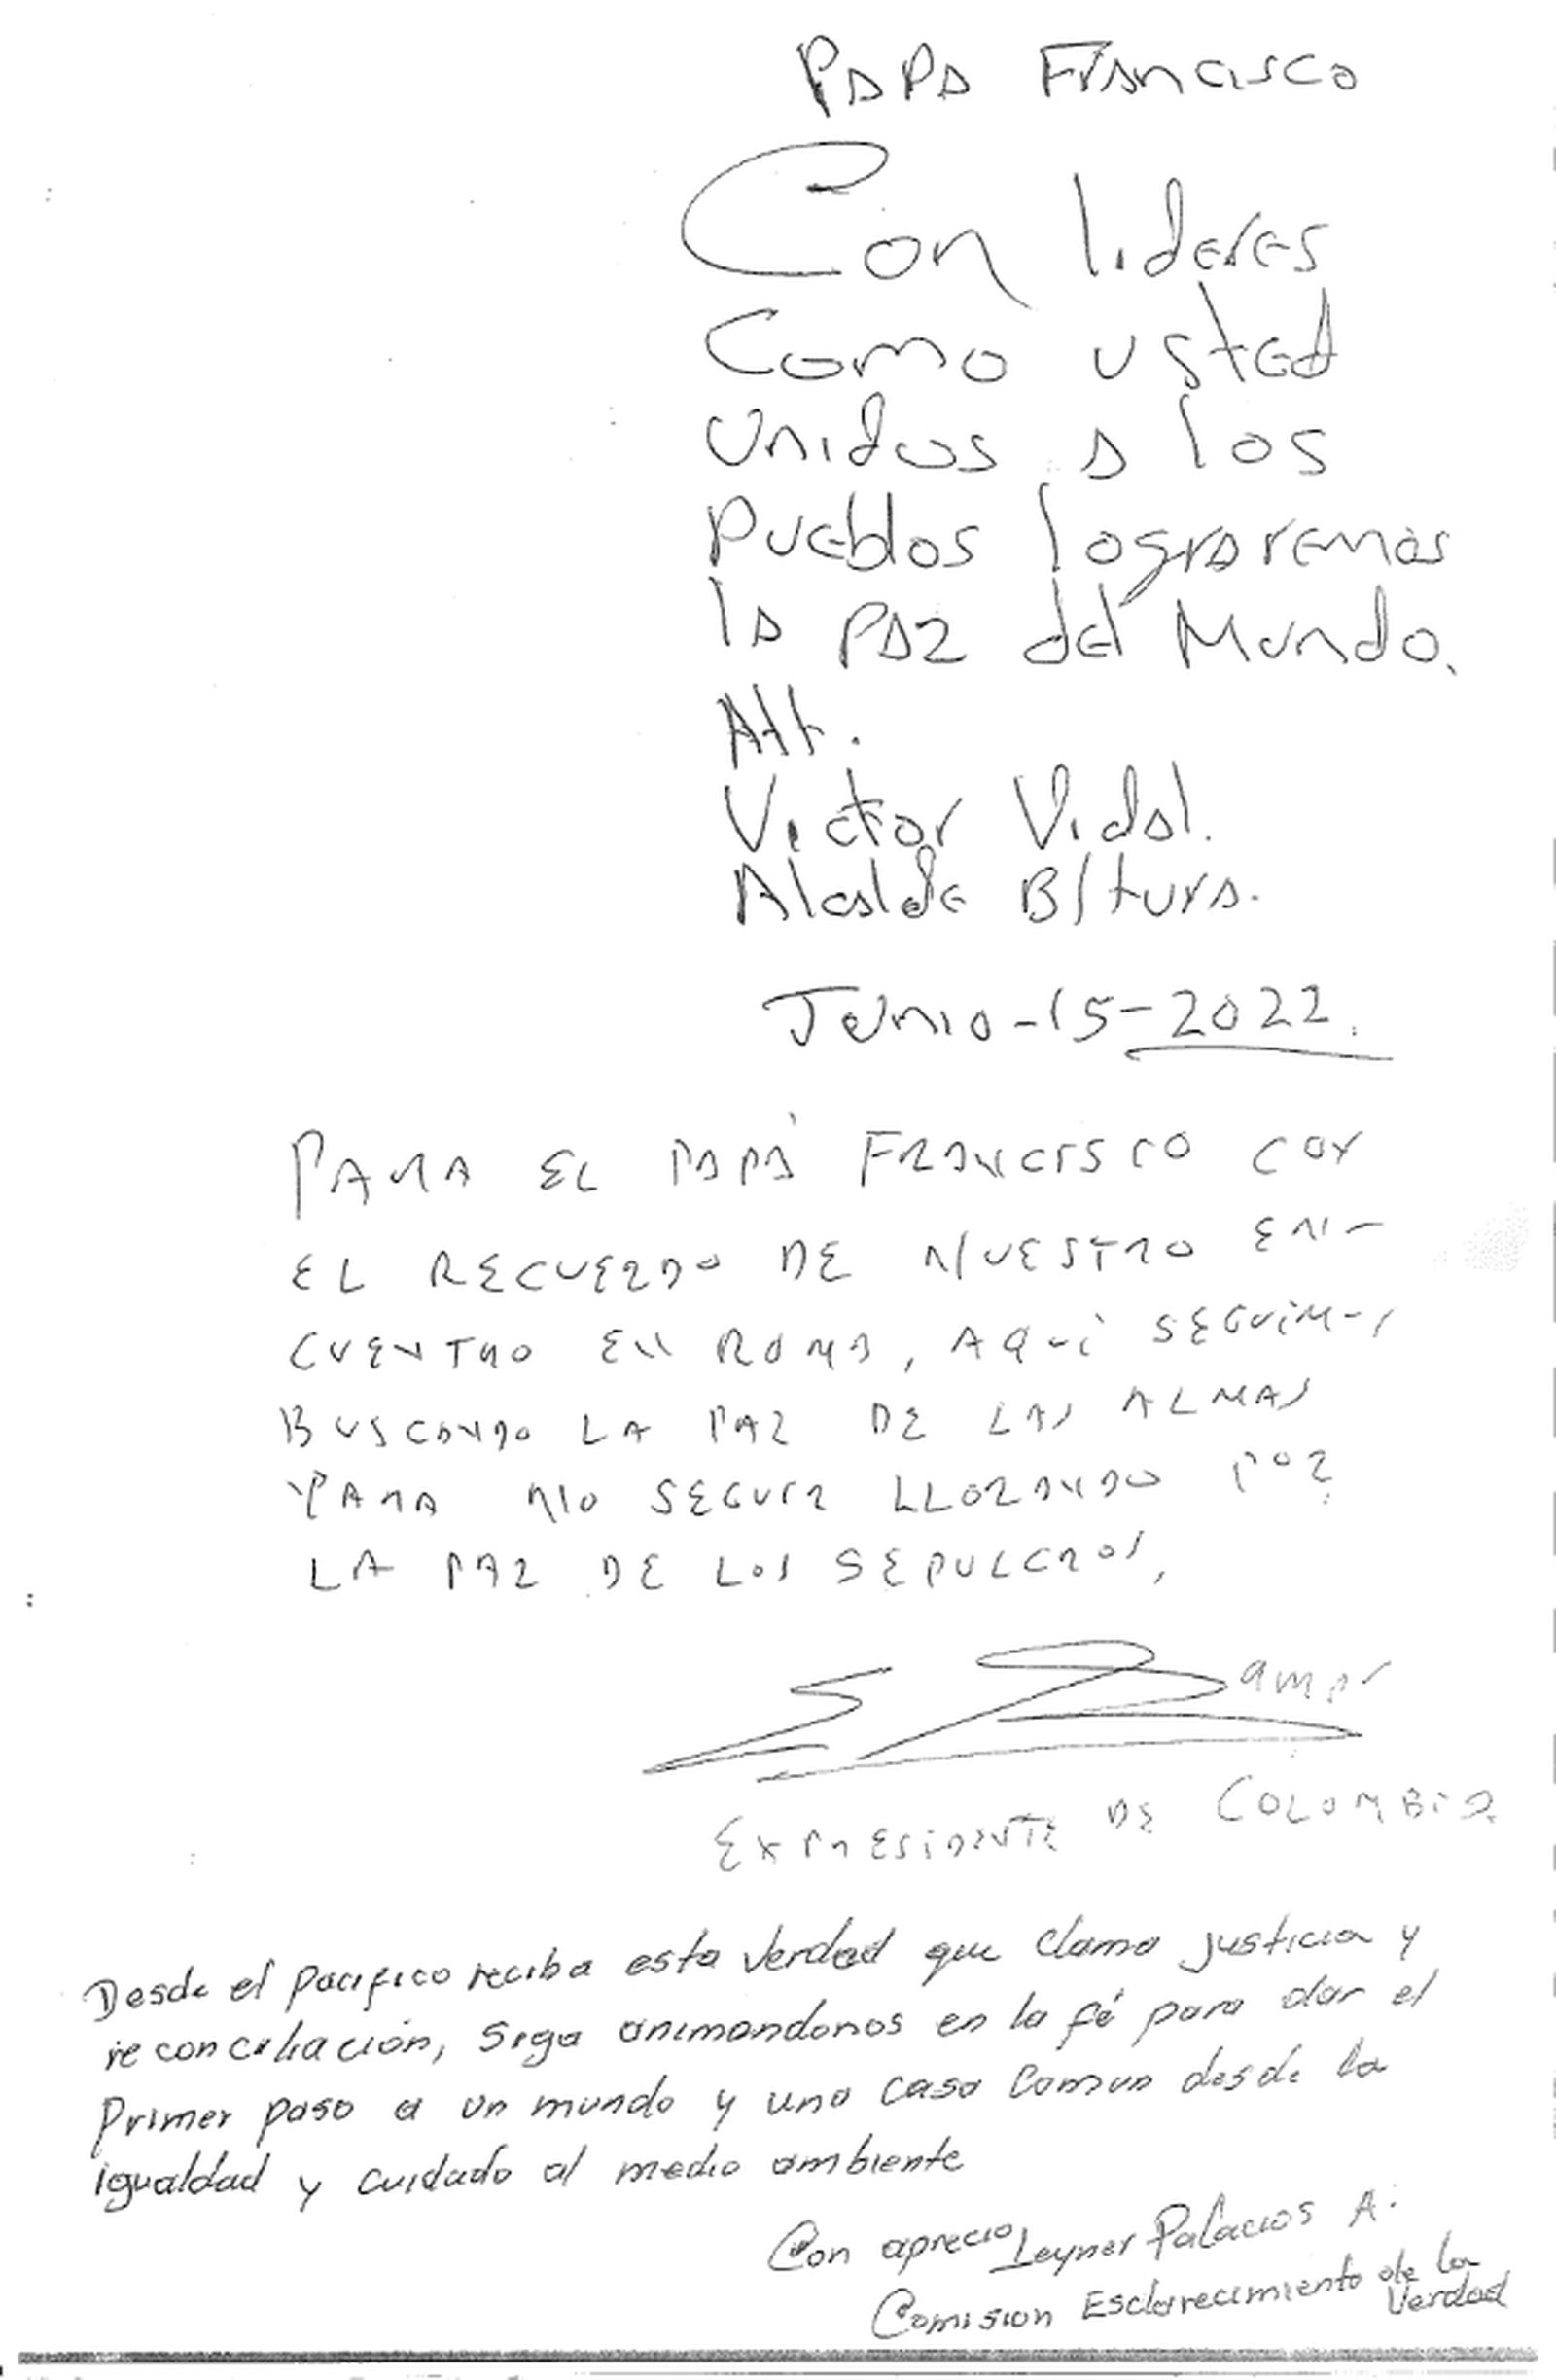 Papa Francisco
Con lideres
Como usted
unidos a los
Pueblos lograremos
la Paz del Mundo.
Att.
Victor Vidal.
Alcalde B/tura.
Junio-15-2022.
PARA EL PAPÁ FRANCISCO CON
EL RECUERDO DE NUESTRO EN-
CUENTRO EN ROMA, AQUÍ SEGUIMOS
BUSCANDO LA PAZ DE LAS ALMAS
PARA NO SEGUIR LLORANDO POR
LA PAZ DE LOS SEPULCROS,
E Samper
EXPRESIDENTE DE COLOMBIA
Desde el pacifico reciba esta verdad que clama justicia y
reconciliación, siga animandonos en la fé para dar el
Primer paso a un mundo y una casa comun desde la
igualdad y cuidado al medio ambiente
Con aprecio Leyner Palacios A.
Comision Esclarecimiento de la
Verdad